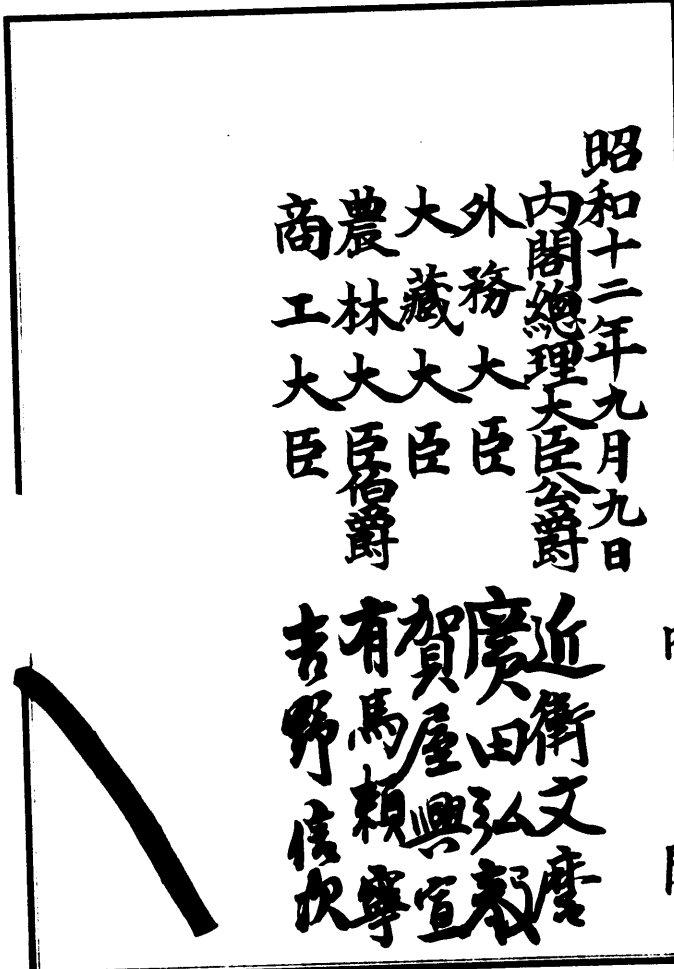 昭和十二年九月九日
內閣總理大臣公爵 近衞文麿
外務大臣 廣田弘毅
大藏大臣 賀屋興宣
農林大臣伯爵 有馬賴寧
商工大臣 吉野信次